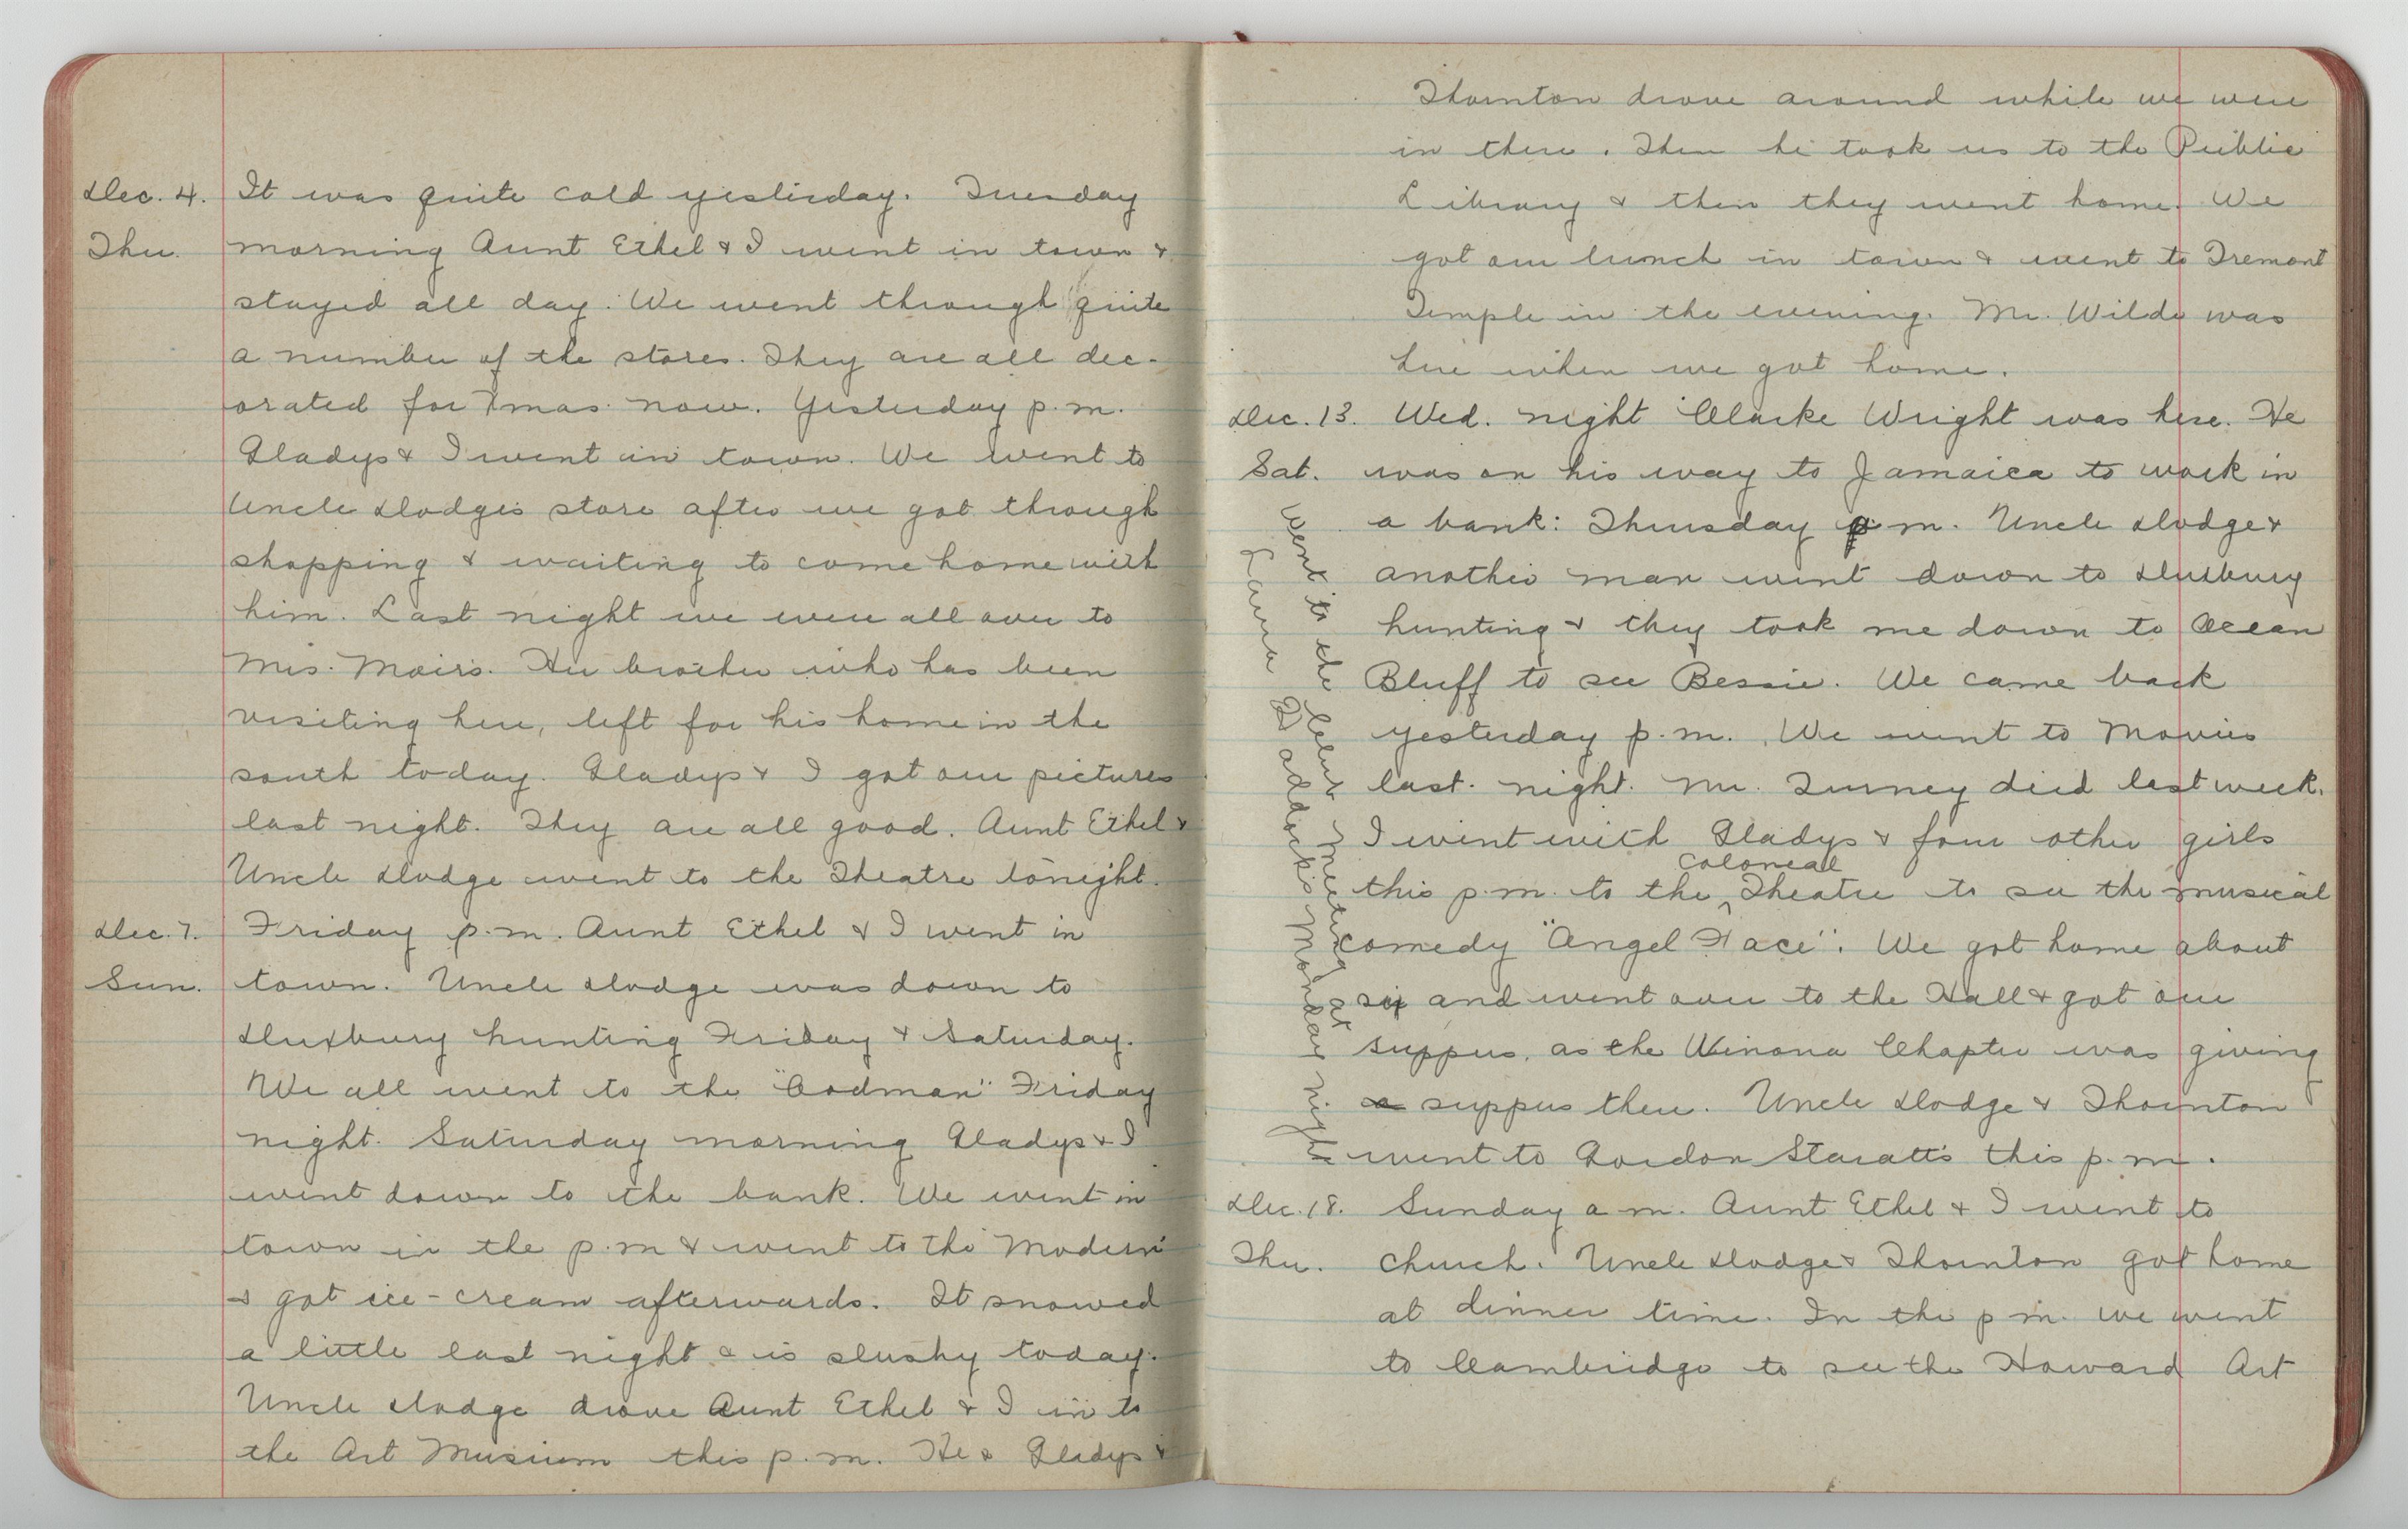 Dec. 4. It was quite cold yesterday. Tuesday
Thu. morning Aunt Ethel & I went in town &
stayed all day. We went through quite
a number of the stores. They are all dec-
orated for Xmas now. Yesterday p.m.
Gladys & I went in town. We went to
Uncle Dodge's store after we got through
shopping & waiting to come home with
him. Last night we were all over to
Mrs. Moirs. Her brother who has been
visiting here, left for his home in the
south today. Gladys & I got our pictures
last night. They are all good. Aunt Ethel &
Uncle Dodge went to the Theatre tonight.
Dec. 7. Friday p.m. Aunt Ethel & I went in
Sun. town. Uncle Dodge was down to
Duxbury hunting Friday & Saturday.
We all went to the "Codman" Friday
night. Saturday morning Gladys & I
went down to the bank. We went in
town in the p.m & went to the Modern
& got ice-cream afterwards. It snowed
a little last night & is slushy today.
Uncle Dodge drove Aunt Ethel & I in to
the Art Museum this p.m. He & Gladys &
Thornton drove around while we were
in there. Then he took us to the Public
Library & then they went home. We
got our lunch in town & went to Tremont
Temple in the evening. Mr. Wilde was
here when we got home.
Dec. 13. Wed. night Clarke Wright was here. He
Sat. was on his way to Jamaica to work in
a bank. Thursday p.m. Uncle Dodge &
another man went down to Duxbury
hunting & they took me down to Ocean
Bluff to see Bessie. We came back
yesterday p.m. We went to Movies
last night. Mr. Turney died last week.
I went with Gladys & four other girls
this p.m. to the Colonial Theatre to see the musical
comedy "Angel Face". We got home about
six and went over to the Hall & got our
supper, as the Winona Chapter was giving
a supper there. Uncle Dodge & Thornton
went to Gordon Staratt's this p.m.
went to the Club meeting at
Laura Daddock's Monday night
Dec. 18. Sunday a m. Aunt Ethel & I went to
Thu. church. Uncle Dodge & Thornton got home
at dinner time. In the p m. we went
to Cambridge to see the Howard Art